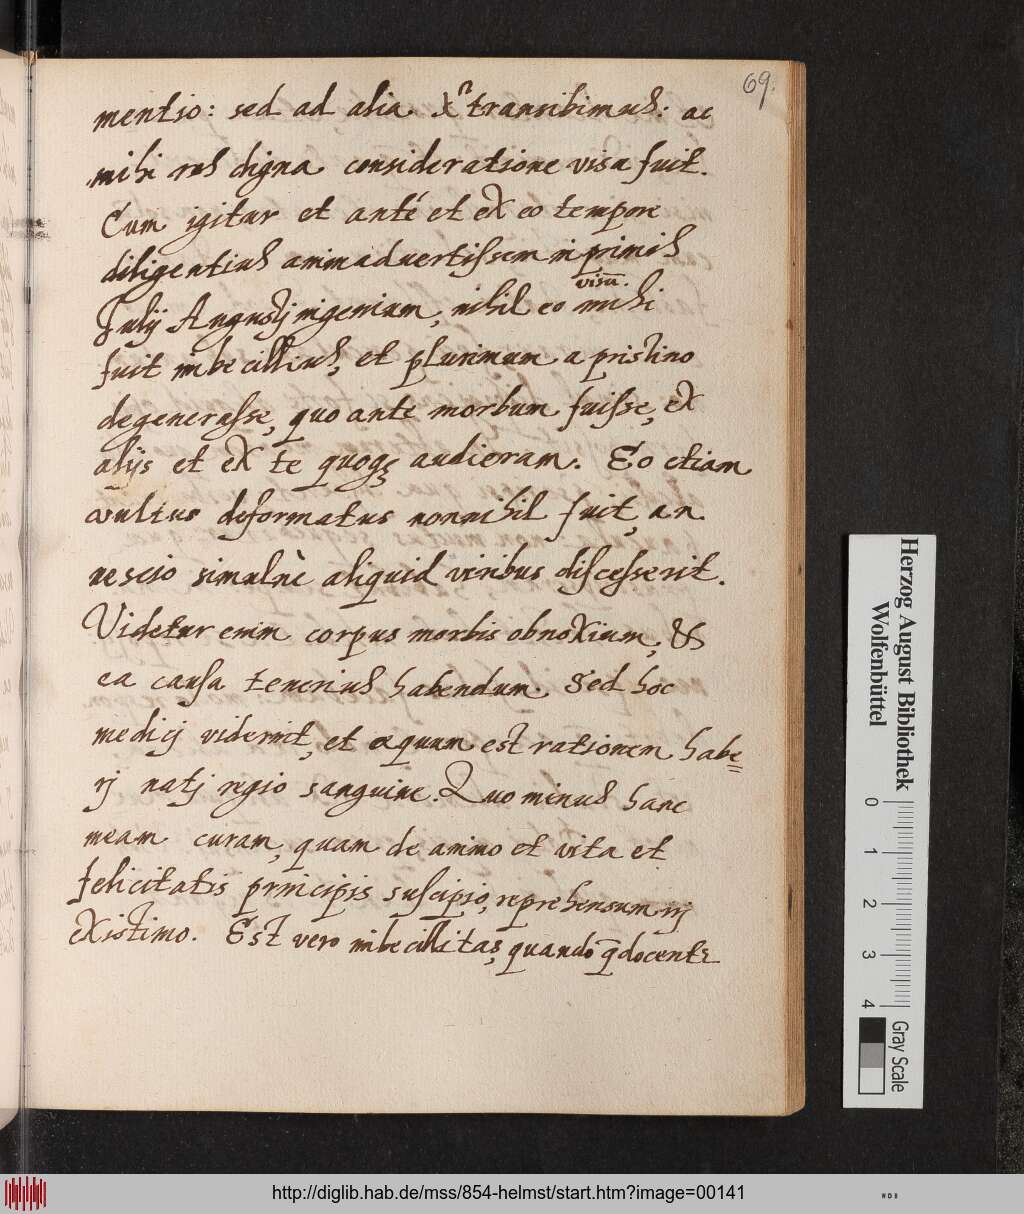 69.
mentio: sed ad alia transibimus: ac
mihi res digna consideratione visa fuit.
Cum igitur et anté et ex eo tempore
diligentius animaduertissem in primis
visū.
Julij Augustj ingenium, nihil eo mihi
fuit imbecillius, et plurimum a pristino
degenerasse, quo ante morbum fuisse, ex
alijs et ex te quoqȝ audieram. Eo etiam
vultus deformatus nonnihil fuit, an
nescio simulnè aliquid viribus discesserit.
Videtur enim corpus morbis obnoxium, &
ea causa tenerius habendum. Sed hoc
medicj viderint, et æquum est rationem habe=
rj natj regio sanguine. Quo minus hanc
meam curam, quam de animo et vita et
felicitatis principis suscipio, reprehensum irj
existimo. Est vero imbecillitas, quando q̄ docentr
Herzog August Bibliothek
Wolfenbüttel
0 1 2 3 4
Gray Scale
http://diglib.hab.de/mss/854-helmst/start.htm?image=00141
WDB